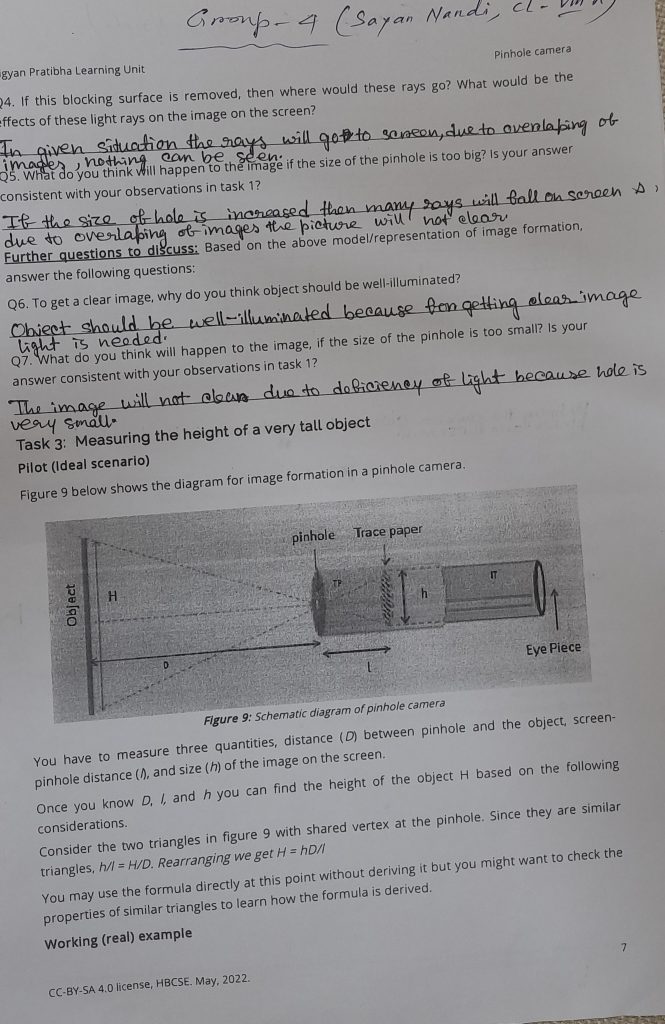 Group-4 (Sayan Nandi, cl- VIII
gyan Pratibha Learning Unit
Pinhole camera
Q4. If this blocking surface is removed, then where would these rays go? What would be the
effects of these light rays on the image on the screen?
In given situation the rays will go to screen, due to overlaping of
images, nothing can be seen.
Q5. What do you think will happen to the image if the size of the pinhole is too big? Is your answer
consistent with your observations in task 1?
If the size of hole is increased then many rays will fall on screen &
due to overlaping of images the picture will not clear
Further questions to discuss: Based on the above model/representation of image formation,
answer the following questions:
Q6. To get a clear image, why do you think object should be well-illuminated?
Object should be well-illuminated because for getting clear image
light is needed.
Q7. What do you think will happen to the image, if the size of the pinhole is too small? Is your
answer consistent with your observations in task 1?
The image will not clear due to deficiency of light because hole is
very small.
Task 3: Measuring the height of a very tall object
Pilot (Ideal scenario)
Figure 9 below shows the diagram for image formation in a pinhole camera.
pinhole Trace paper
Object
H
TP
h
IT
D
L
Eye Piece
Figure 9: Schematic diagram of pinhole camera
You have to measure three quantities, distance (D) between pinhole and the object, screen-
pinhole distance (l), and size (h) of the image on the screen.
Once you know D, l, and h you can find the height of the object H based on the following
considerations.
Consider the two triangles in figure 9 with shared vertex at the pinhole. Since they are similar
triangles, h/l = H/D. Rearranging we get H = hD/l
You may use the formula directly at this point without deriving it but you might want to check the
properties of similar triangles to learn how the formula is derived.
Working (real) example
7
CC-BY-SA 4.0 license, HBCSE. May, 2022.